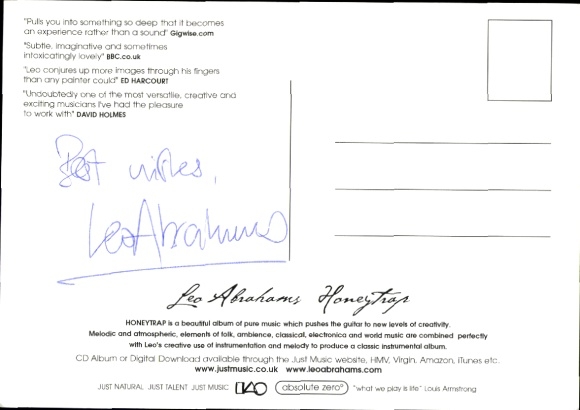 "Pulls you into something so deep that it becomes
an experience rather than a sound" Gigwise.com
"Subtle, imaginative and sometimes
intoxicatingly lovely" BBC.co.uk
"Leo conjures up more images through his fingers
than any painter could" ED HARCOURT
"Undoubtedly one of the most versatile, creative and
exciting musicians I've had the pleasure
to work with" DAVID HOLMES
Best wishes,
Leo Abrahams
Leo Abrahams Honeytrap
HONEYTRAP is a beautiful album of pure music which pushes the guitar to new levels of creativity.
Melodic and atmospheric, elements of folk, ambience, classical, electronica and world music are combined perfectly
with Leo's creative use of instrumentation and melody to produce a classic instrumental album.
CD Album or Digital Download available through the Just Music website, HMV, Virgin, Amazon, iTunes etc.
www.justmusic.co.uk www.leoabrahams.com
JUST NATURAL JUST TALENT JUST MUSIC absolute zero° "what we play is life" Louis Armstrong